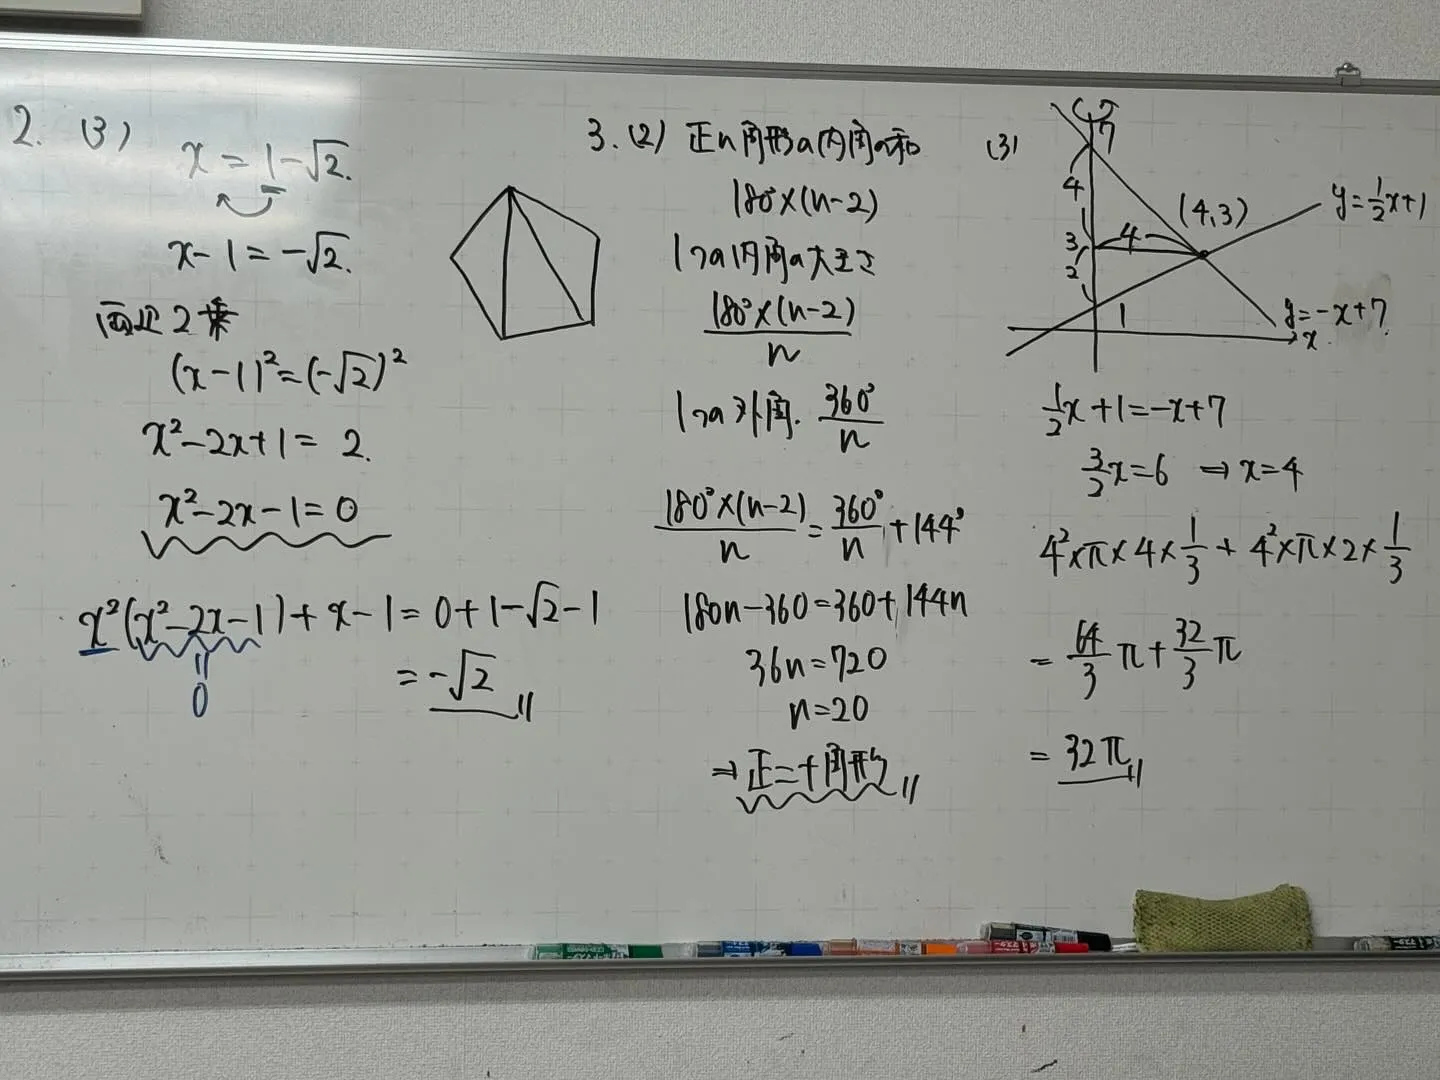 2. (3)
x = 1-√2.
x-1 = -√2.
両辺2乗
(x-1)² = (-√2)²
x²-2x+1 = 2.
x²-2x-1 = 0
x²(x²-2x-1)+x-1 = 0+1-√2-1
0
= -√2
3. (2) 正n角形の内角の和
180°×(n-2)
1つの内角の大きさ
180°×(n-2)/n
1つの外角. 360°/n
180°×(n-2)/n = 360°/n + 144°
180n-360 = 360+144n
36n = 720
n = 20
⇒ 正二十角形
(3)
7
4
3
2
4
(4,3)
1
y = 1/2x+1
y = -x+7
x
1/2x+1 = -x+7
3/2x = 6 ⇒ x = 4
4²×π×4×1/3 + 4²×π×2×1/3
= 64/3π + 32/3π
= 32π